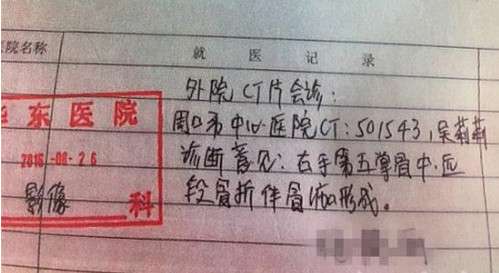 医院名称
就医记录
外院CT片会诊:
周口市中心医院CT:501543,吴莉莉
东医院
诊断意见:右手第五掌骨中.近
2015-08-26
段骨折伴骨痂形成。
影像 科